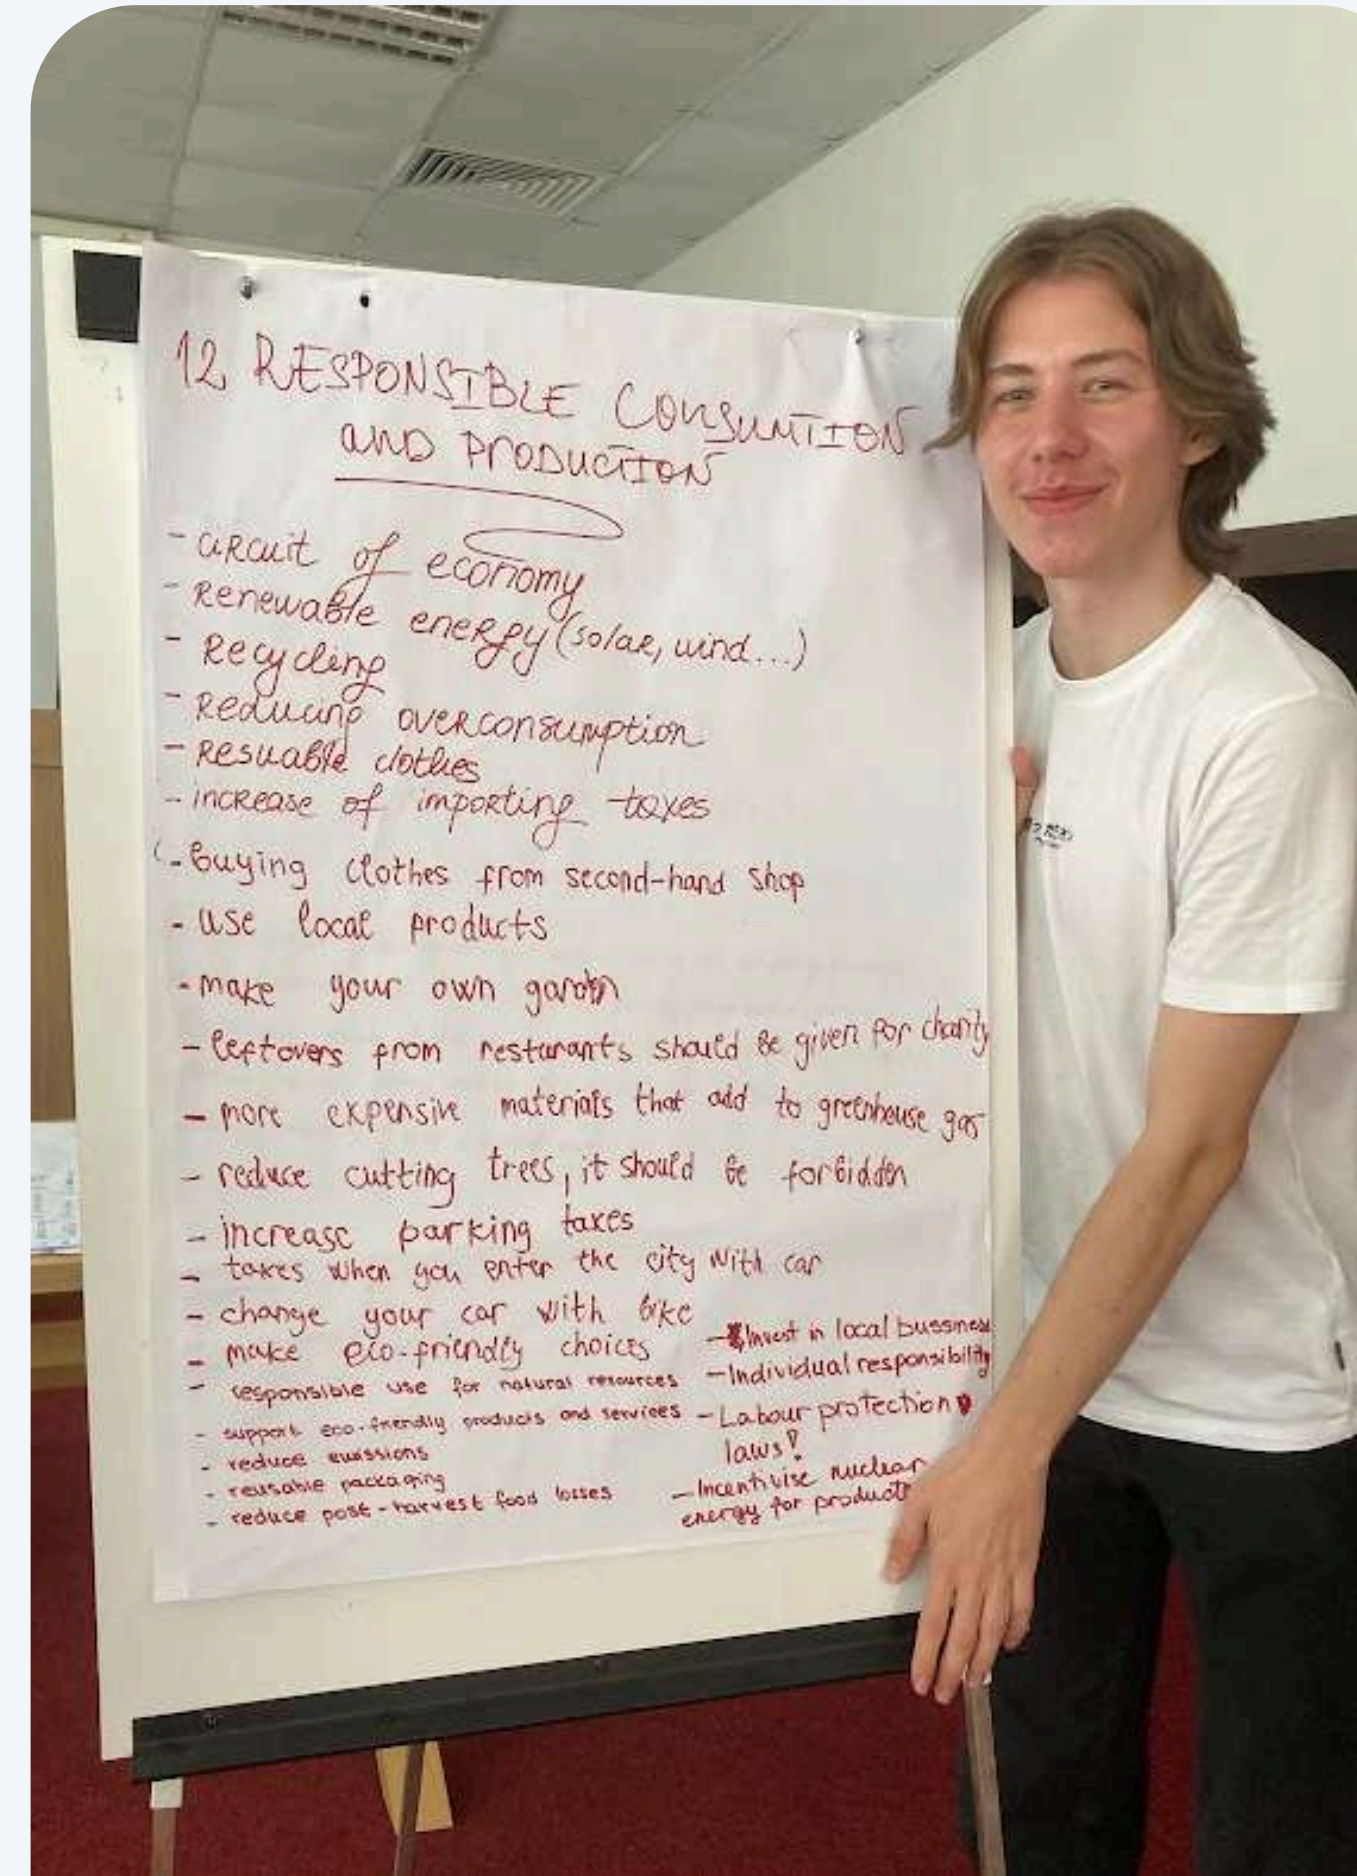 12 RESPONSIBLE CONSUMTION
AND PRODUCTION
- circuit of economy
- Renewable energy (solar, wind...)
- Recycling
- Reducing overconsumption
- Resuable clothes
- increase of importing taxes
- buying clothes from second-hand shop
- use local products
- make your own garden
- leftovers from resturants should be given for charity
- more expensive materials that add to greenhouse gas
- reduce cutting trees, it should be forbidden
- increase parking taxes
- taxes when you enter the city with car
- change your car with bike
- make eco-friendly choices
- responsible use for natural resources
- support eco-friendly products and services
- reduce emissions
- reusable packaging
- reduce post-harvest food losses
- Invest in local bussiness
- Individual responsibility
- Labour protection
laws!
- Incentivise nuclear
energy for product